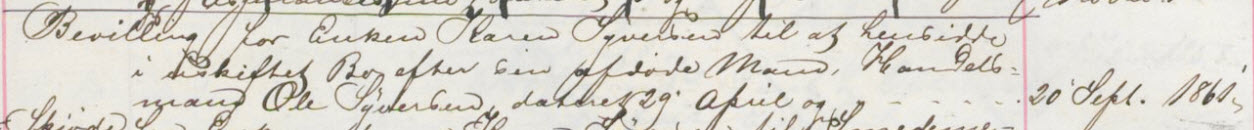 Bevilling for Enken Karen Syversen til at hensidde
i uskiftet Bo efter sin afdøde Mand, Handels-
mand Ole Syversen, dateret 29 April og - - - - - 20 Sept. 1861,